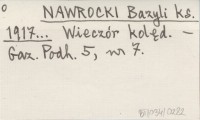 NAWROCKI Bazyli ks.
1917... Wieczór kolęd. —
Gaz. Podh. 5, nr 7.